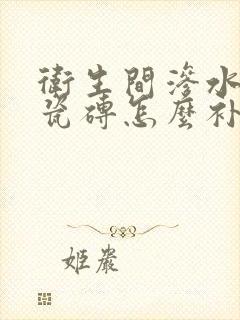 衛生間滲水
瓷磚怎麼补
姬嚴